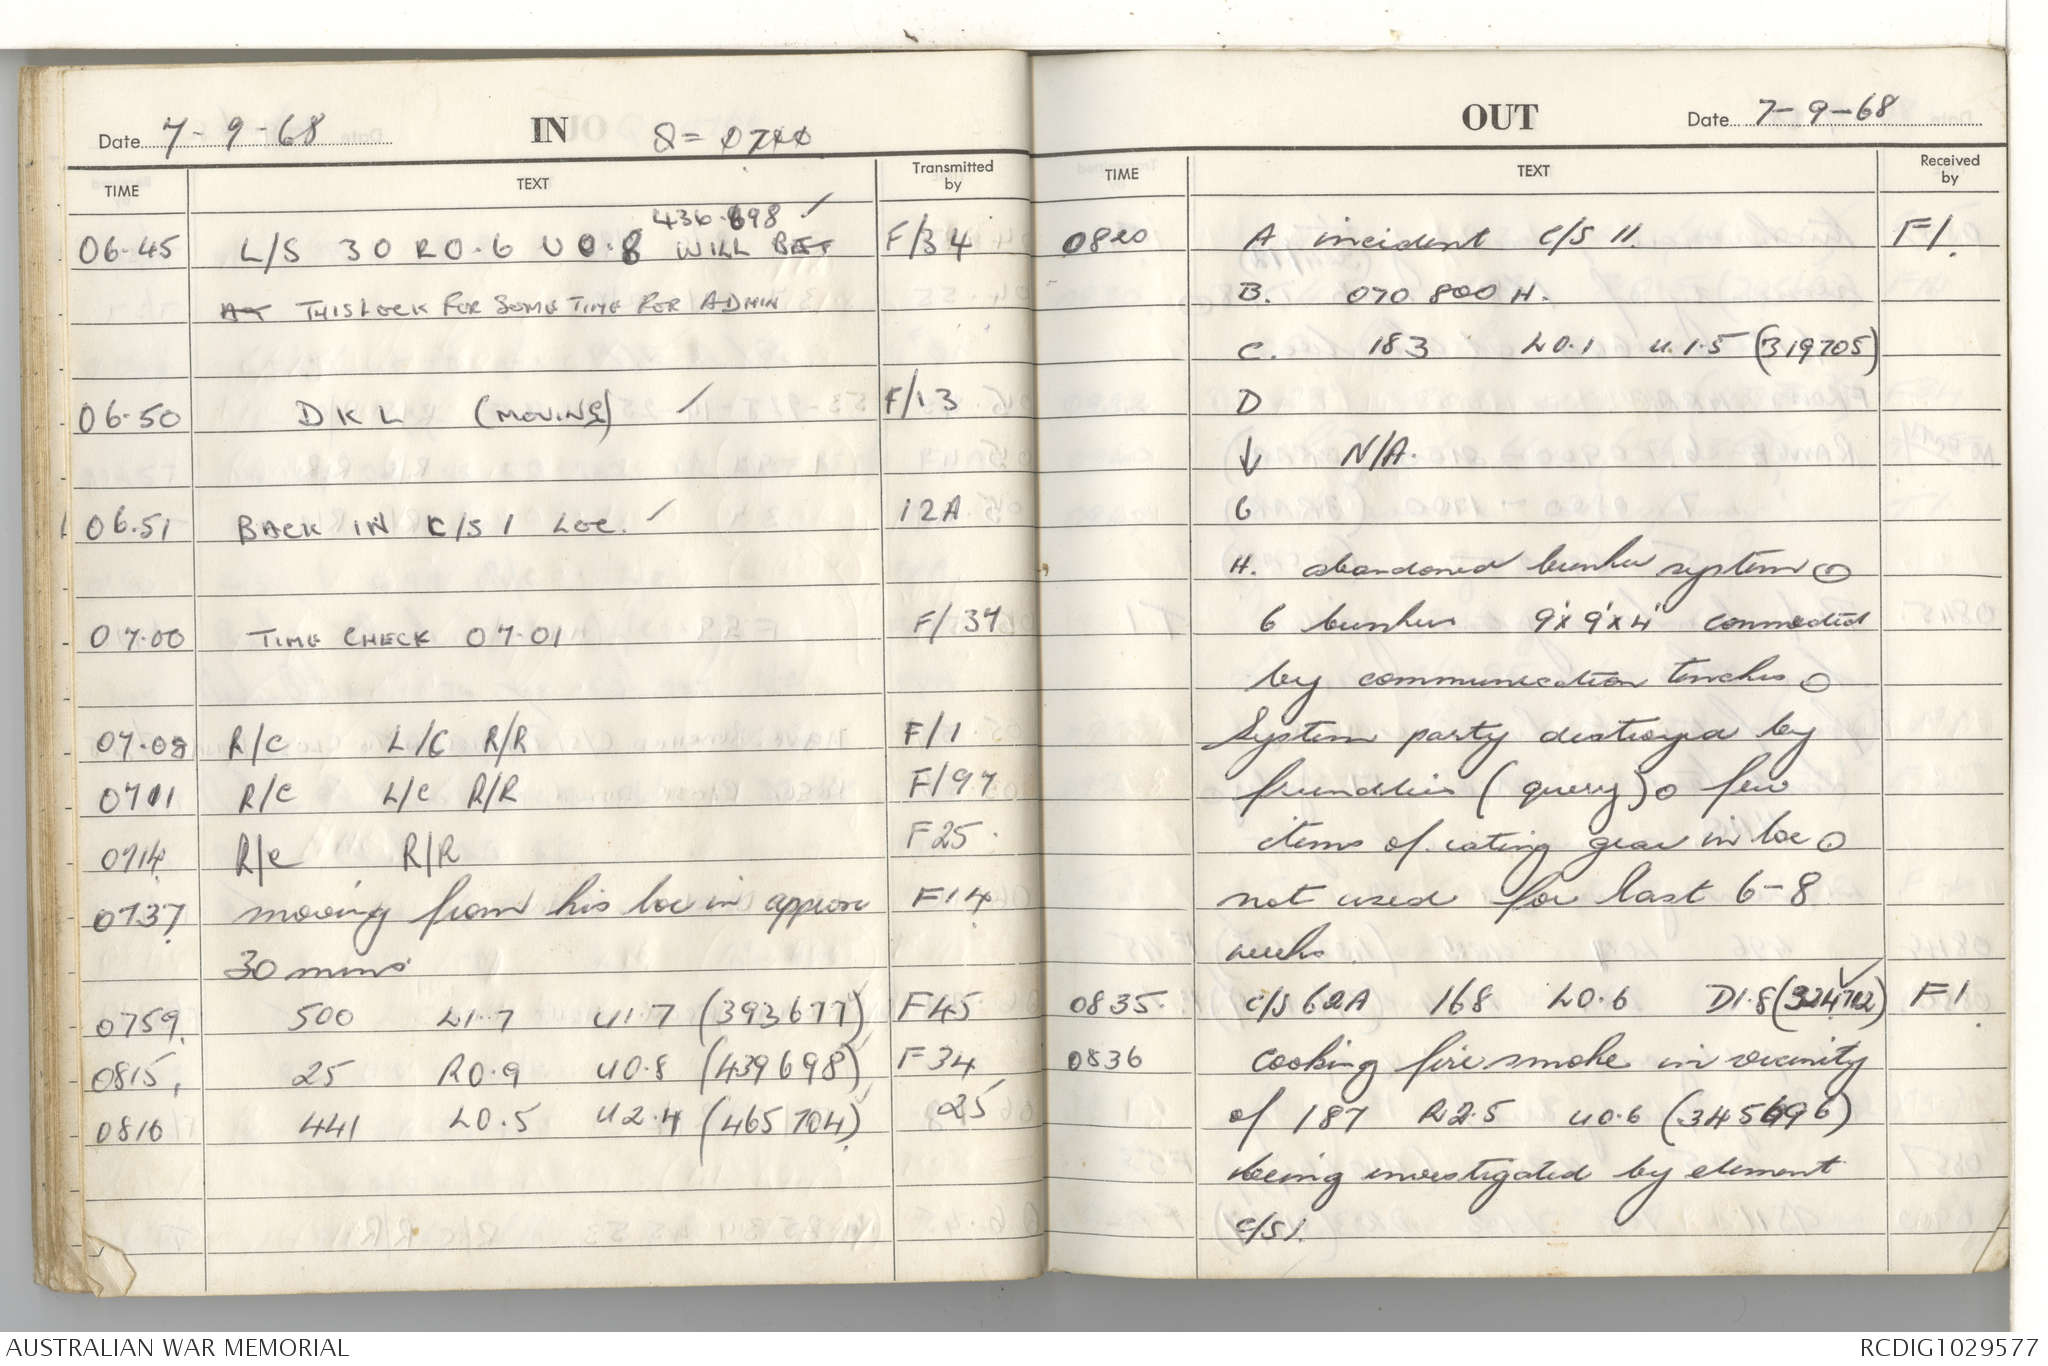 Date 7-9-68 IN
TIME TEXT Transmitted by
436.898 ✓
06.45 L/S 30 R0.6 U0.8 WILL F/34
THIS LOCK FOR SOME TIME FOR ADMIN
06.50 DKL (MOVING) ✓ F/13
06.51 BACK IN C/S 1 LOC. ✓ 12A
07.00 TIME CHECK 07.01 F/37
07.08 R/C L/C R/R F/1
0711 R/C L/C R/R F/97
0714 R/C R/R F25.
0737 moving from his loc in approx F14
30 mins
0759 500 L1.7 U1.7 (393677) F45
0815, 25 R0.9 U0.8 (439698) F34
0816 441 L0.5 U2.4 (465704) 25
OUT Date 7-9-68
TIME TEXT Received by
0820 A incident C/S 11. F1.
B. 070 800 H.
C. 183 L0.1 U.1.5 (319705)
D
↓ N/A.
G
H. abandoned bunker system ⊙
6 bunkers 9'x9'x4' connected
by communication trenches ⊙
System party destroyed by
friendlies (query) ⊙ few
items of eating gear in loc ⊙
not used for last 6-8
weeks
0835. C/S 62A 168 L0.6 D1.8 (324702) ✓ F1
0836 Cooking fire smoke in vicinity
of 187 R2.5 U0.6 (345696)
being investigated by element
C/S1.
AUSTRALIAN WAR MEMORIAL RCDIG1029577